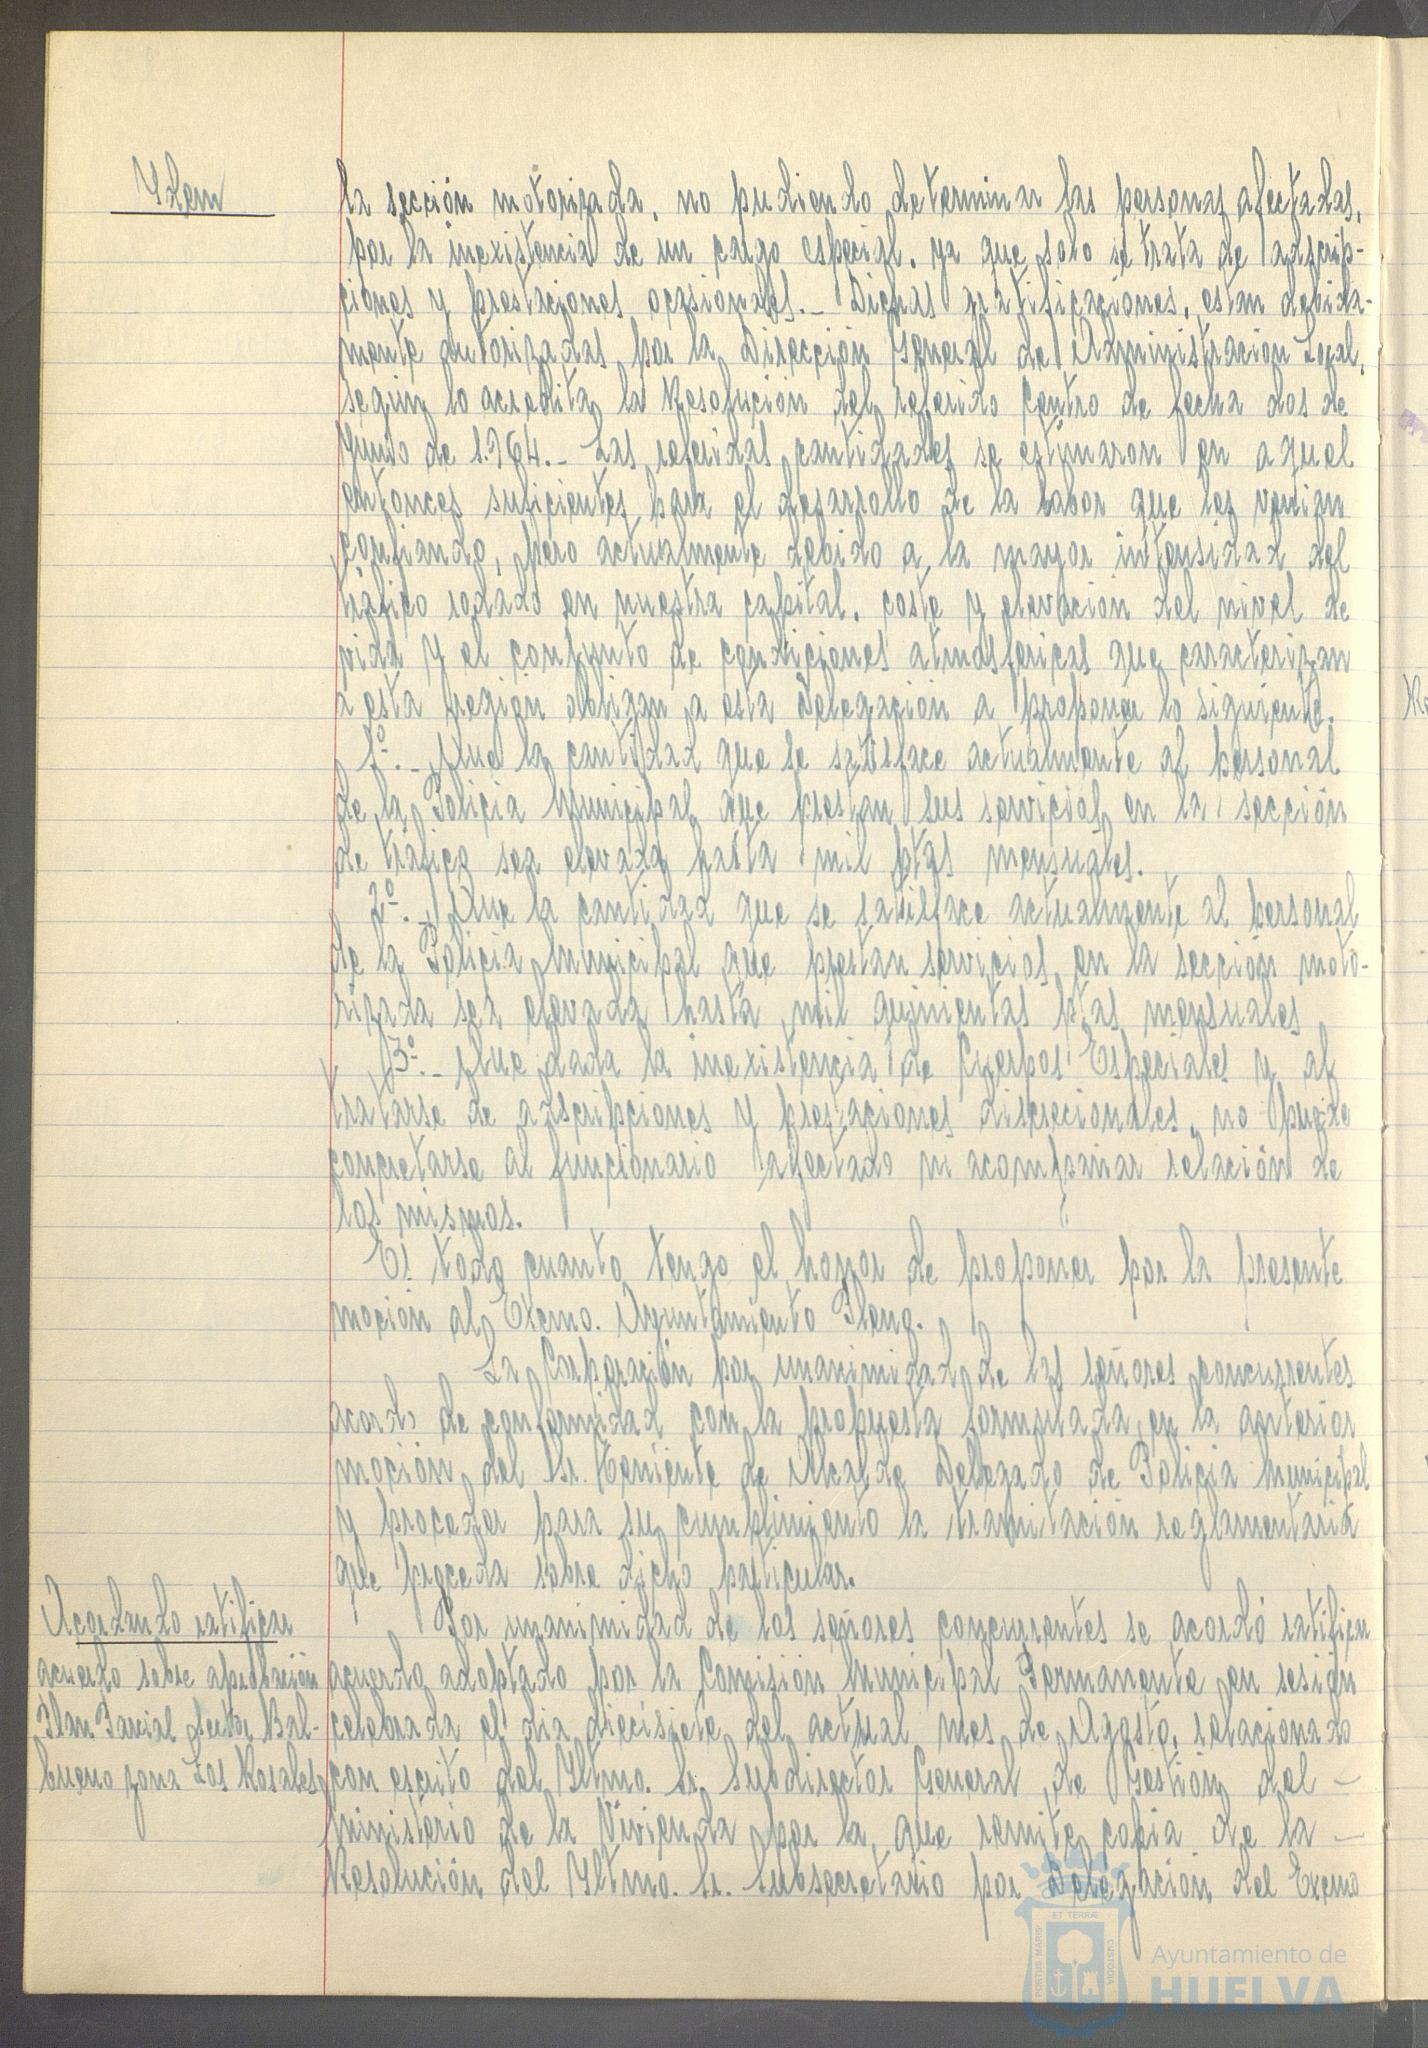 Ydem
la sección motorizada, no pudiendo determinar las personas afectadas,
por la inexistencia de un cargo especial, ya que solo se trata de adscrip-
ciones y prestaciones ocasionales.- Dichas gratificaciones, estan debida-
mente autorizadas por la Dirección General de Administración Local,
según lo acredita la Resolución del referido Centro de fecha dos de
Junio de 1.964.- Las referidas cantidades se estimaron en aquel
entonces suficientes para el desarrollo de la labor que les venian
confiando, pero actualmente debido a la mayor intensidad del
tráfico rodado en nuestra capital, coste y elevación del nivel de
vida y el conjunto de condiciones atmosfericas que caracterizan
a esta region obligan a esta Delegación a proponer lo siguiente.
1º.- Que la cantidad que se satisface actualmente al personal
de la Policia Municipal que prestan sus servicios en la sección
de tráfico sea elevada hasta mil ptas mensuales.
2º.- Que la cantidad que se satisface actualmente al personal
de la Policia Municipal que prestan servicios en la sección moto-
rizada sea elevada hasta mil quinientas ptas mensuales
3º.- Que dada la inexistencia de Cuerpos Especiales y al
tratarse de adscripciones y prestaciones discrecionales, no puede
concretarse al funcionario afectado ni acompañar relación de
los mismos.
Es todo cuanto tengo el honor de proponer por la presente
moción al Excmo. Ayuntamiento Pleno.
La Corporación por unanimidad de los señores concurrentes
acordó de conformidad con la propuesta formulada en la anterior
moción del Sr. Teniente de Alcalde Delegado de Policia Municipal
y proceder para su cumplimiento la tramitación reglamentaria
que proceda sobre dicho particular.
Acordando ratificar
acuerdo sobre aprobación
Plan Parcial Sector Bal-
bueno zona Los Rosales
Por unanimidad de los señores concurrentes se acordó ratificar
acuerdo adoptado por la Comisión Municipal Permanente en sesión
celebrada el dia diecisiete del actual mes de Agosto, relacionado
con escrito del Yltmo. Sr. Subdirector General de Gestión del -
Ministerio de la Vivienda por la que remite copia de la -
Resolución del Yltmo. Sr. Subsecretario por Delegación del Excmo
ET TERRÆ
PORTUS MARIS
CUSTODIA
Ayuntamiento de
HUELVA